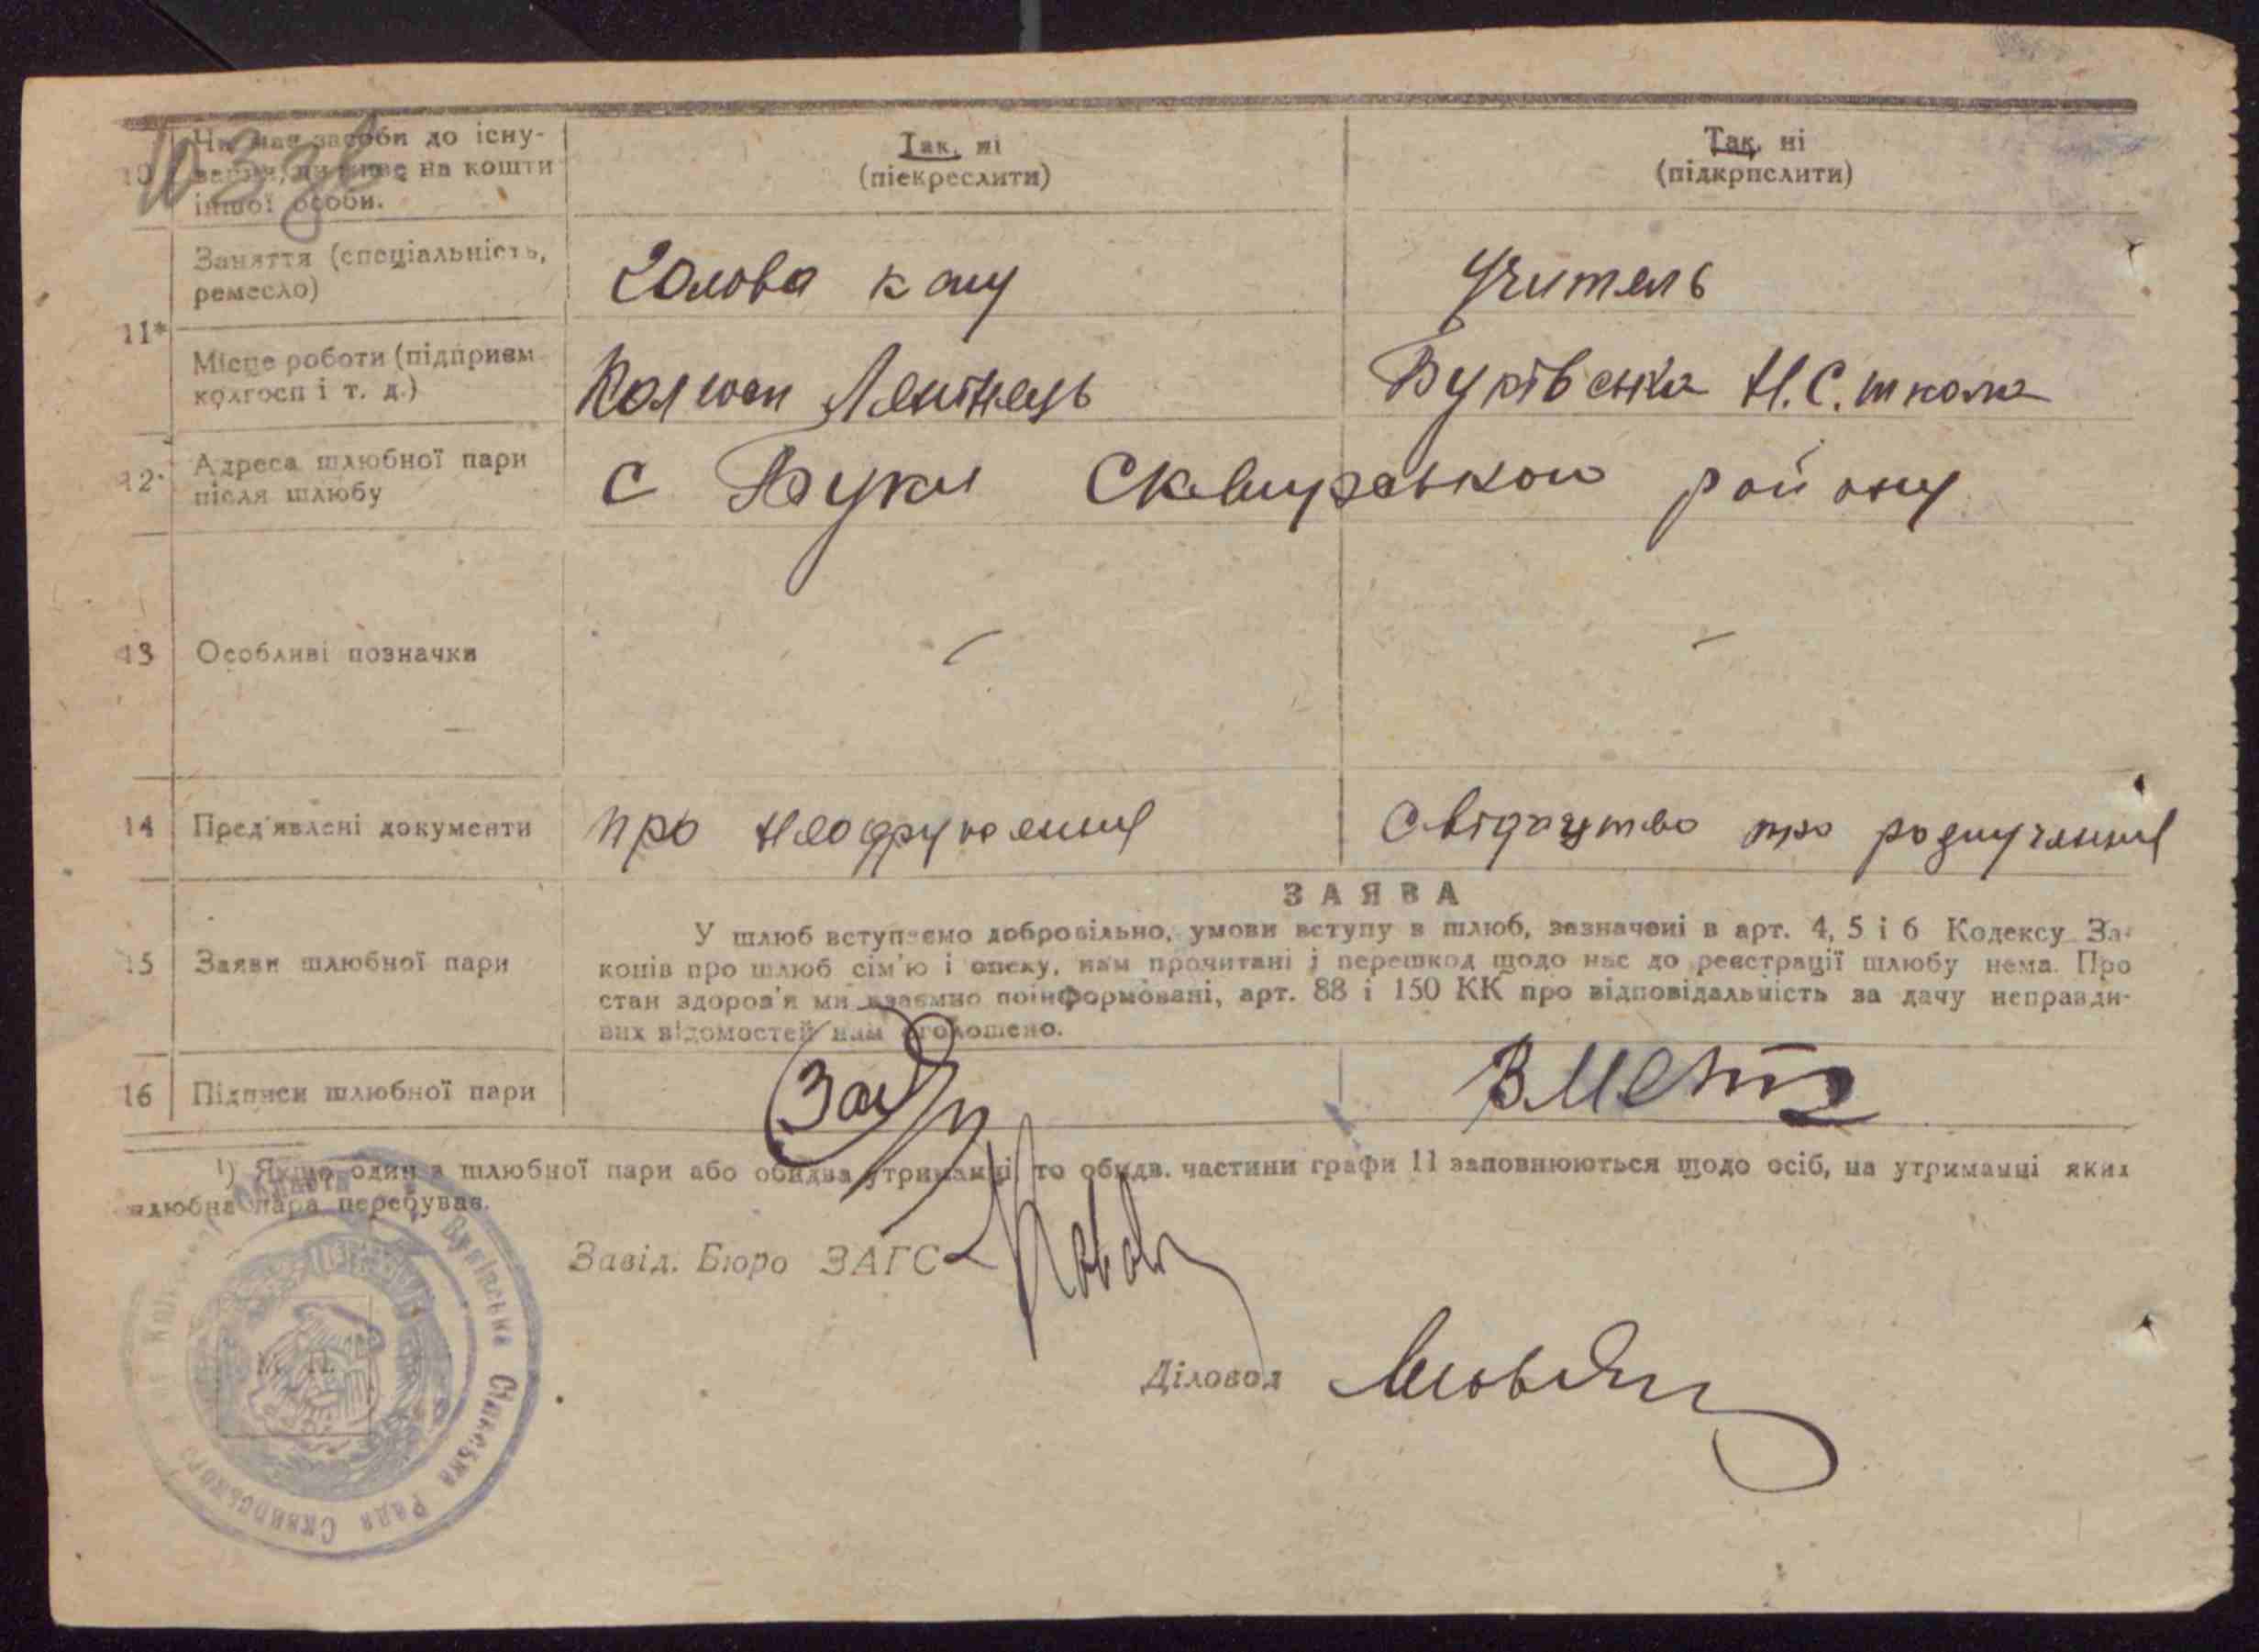 Чи має засоби до існу-
10 вання, чи живе на кошти
іншої особи.
Так, ні
(піекреслити)
Так, ні
(підкрпслити)
11*
Заняття (спеціальність,
ремесло)
Голова к
Учитель
Місце роботи (підприєм
колгосп і т. д.)
Колгосп
Буківська Н.С. школа
12 Адреса шлюбної пари
після шлюбу
с Буки Сквирського району
13 Особливі позначки
14 Пред'явлені документи
про неодруження
Свідоцтво про розлучення
ЗАЯВА
15 Заяви шлюбної пари
У шлюб вступаємо добровільно, умови вступу в шлюб, зазначені в арт. 4, 5 і 6 Кодексу За-
конів про шлюб сім'ю і опеку, нам прочитані і перешкод щодо нас до реєстрації шлюбу нема. Про
стан здоров'я ми взаємно поінформовані, арт. 88 і 150 КК про відповідальність за дачу неправди-
вих відомостей нам оголошено.
16 Підписи шлюбної пари
¹) Якщо один з шлюбної пари або обидва утриманці то обидв. частини графи 11 заповнюються щодо осіб, на утриманці яких
шлюбна пара перебуває.
Завід. Бюро ЗАГС
Діловод
М. П.
Буківська Сільська Рада Сквирського